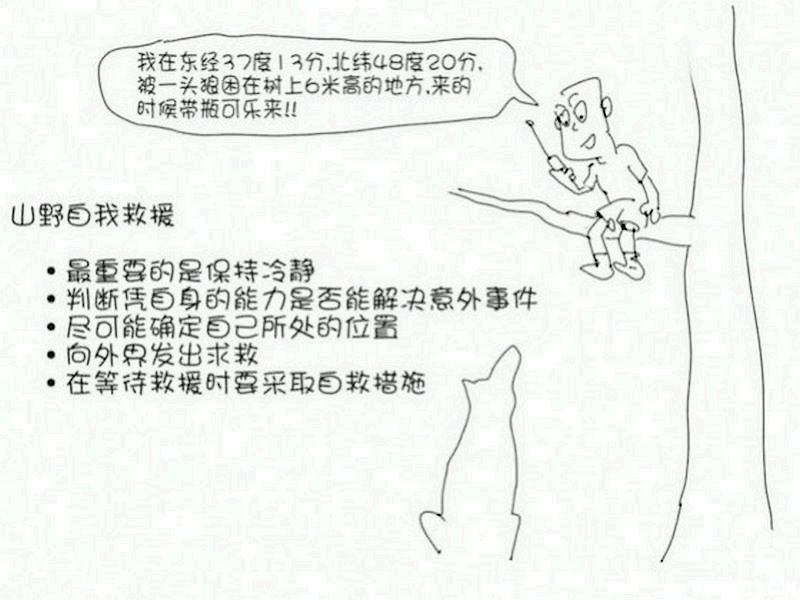 我在东经37度13分,北纬48度20分,
被一头狼困在树上6米高的地方,来的
时候带瓶可乐来!!
山野自我救援
• 最重要的是保持冷静
• 判断凭自身的能力是否能解决意外事件
• 尽可能确定自己所处的位置
• 向外界发出求救
• 在等待救援时要采取自救措施